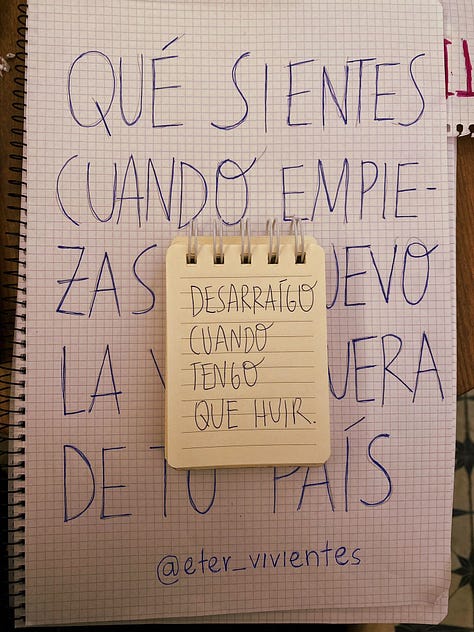 QUÉ SIENTES
CUANDO EMPIE-
ZAS UEVO
LA UERA
DE TU PAÍS
DESARRAÍGO
CUANDO
TENGO
QUE HUIR.
@eter_vivientes